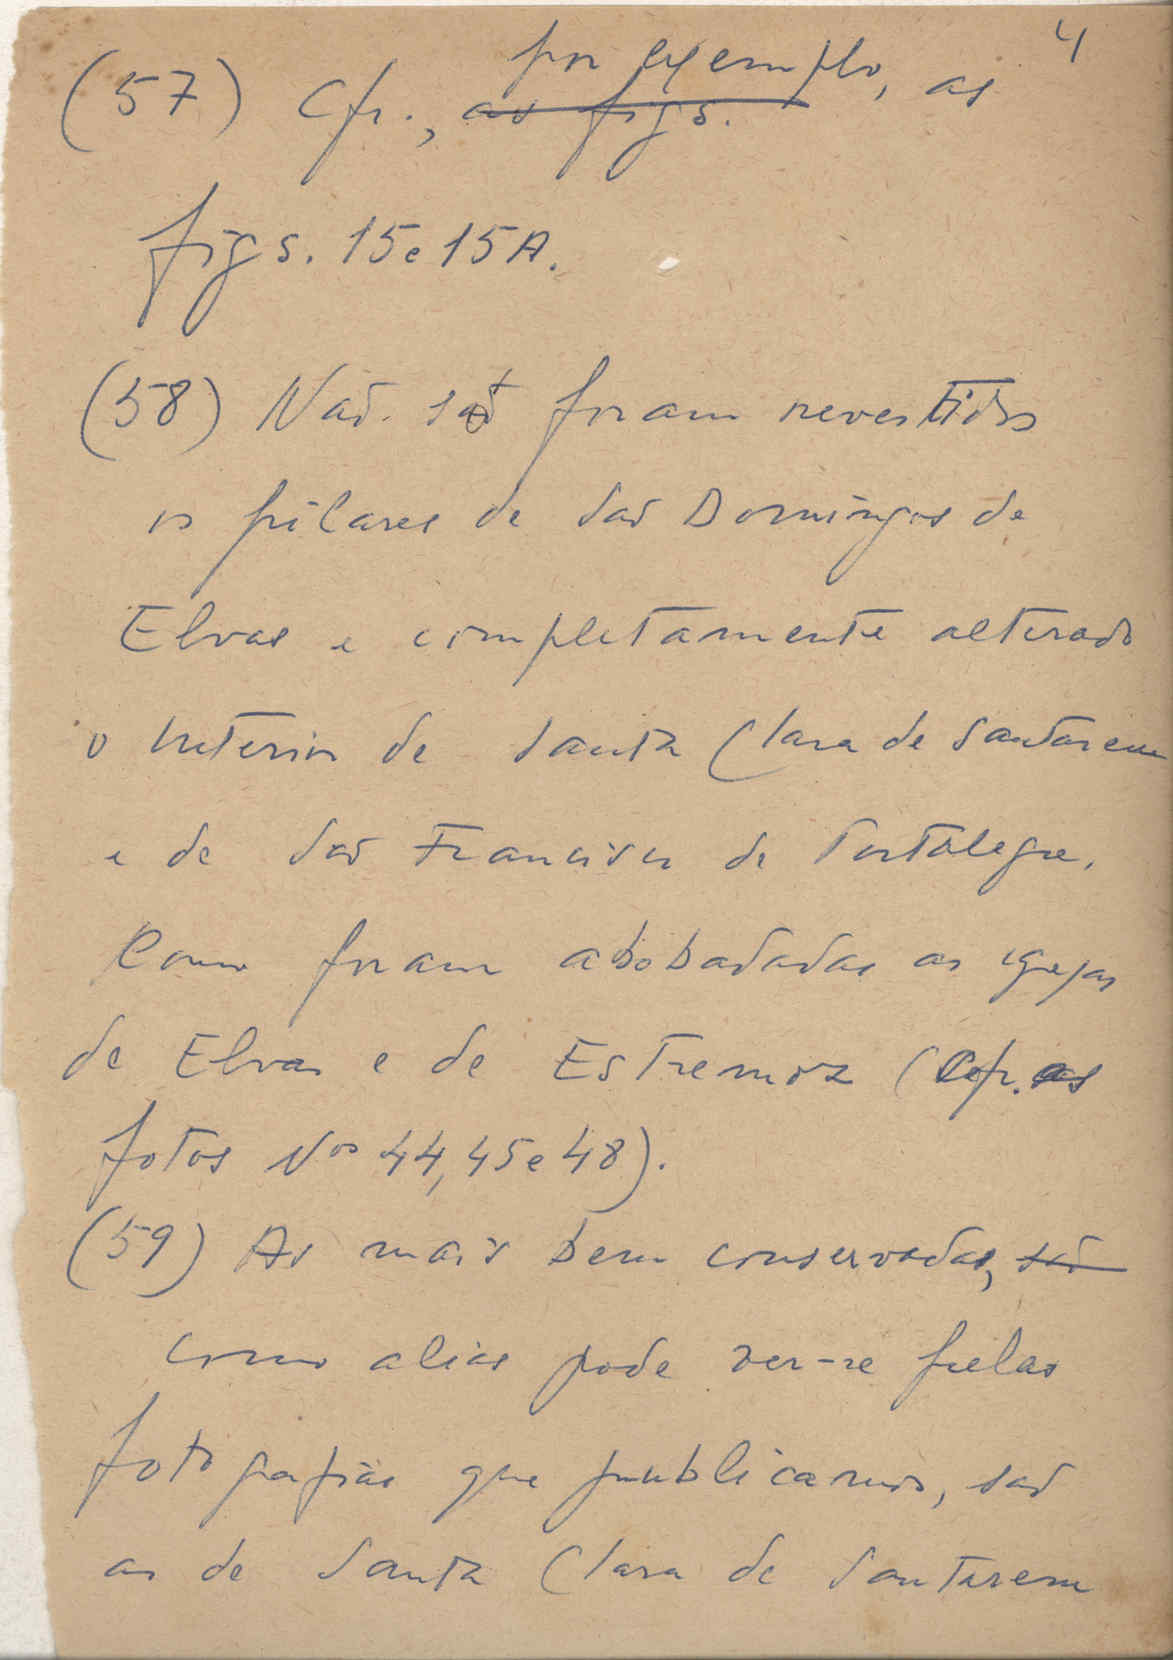 4
por exemplo, as
(57) Cfr., as figs.
figs. 15 e 15A.
(58) Não. só foram revestidos
os pilares de São Domingos de
Elvas e completamente alterado
o interior de Santa Clara de Santarem
e de São Francisco de Portalegre.
Como foram abobadadas as igrejas
de Elvas e de Estremoz (Cfr. as
fotos Nos 44, 45 e 48).
(59) As mais bem conservadas, são
como alias pode ver-se pelas
fotografias que publicamos, são
as de Santa Clara de Santarem